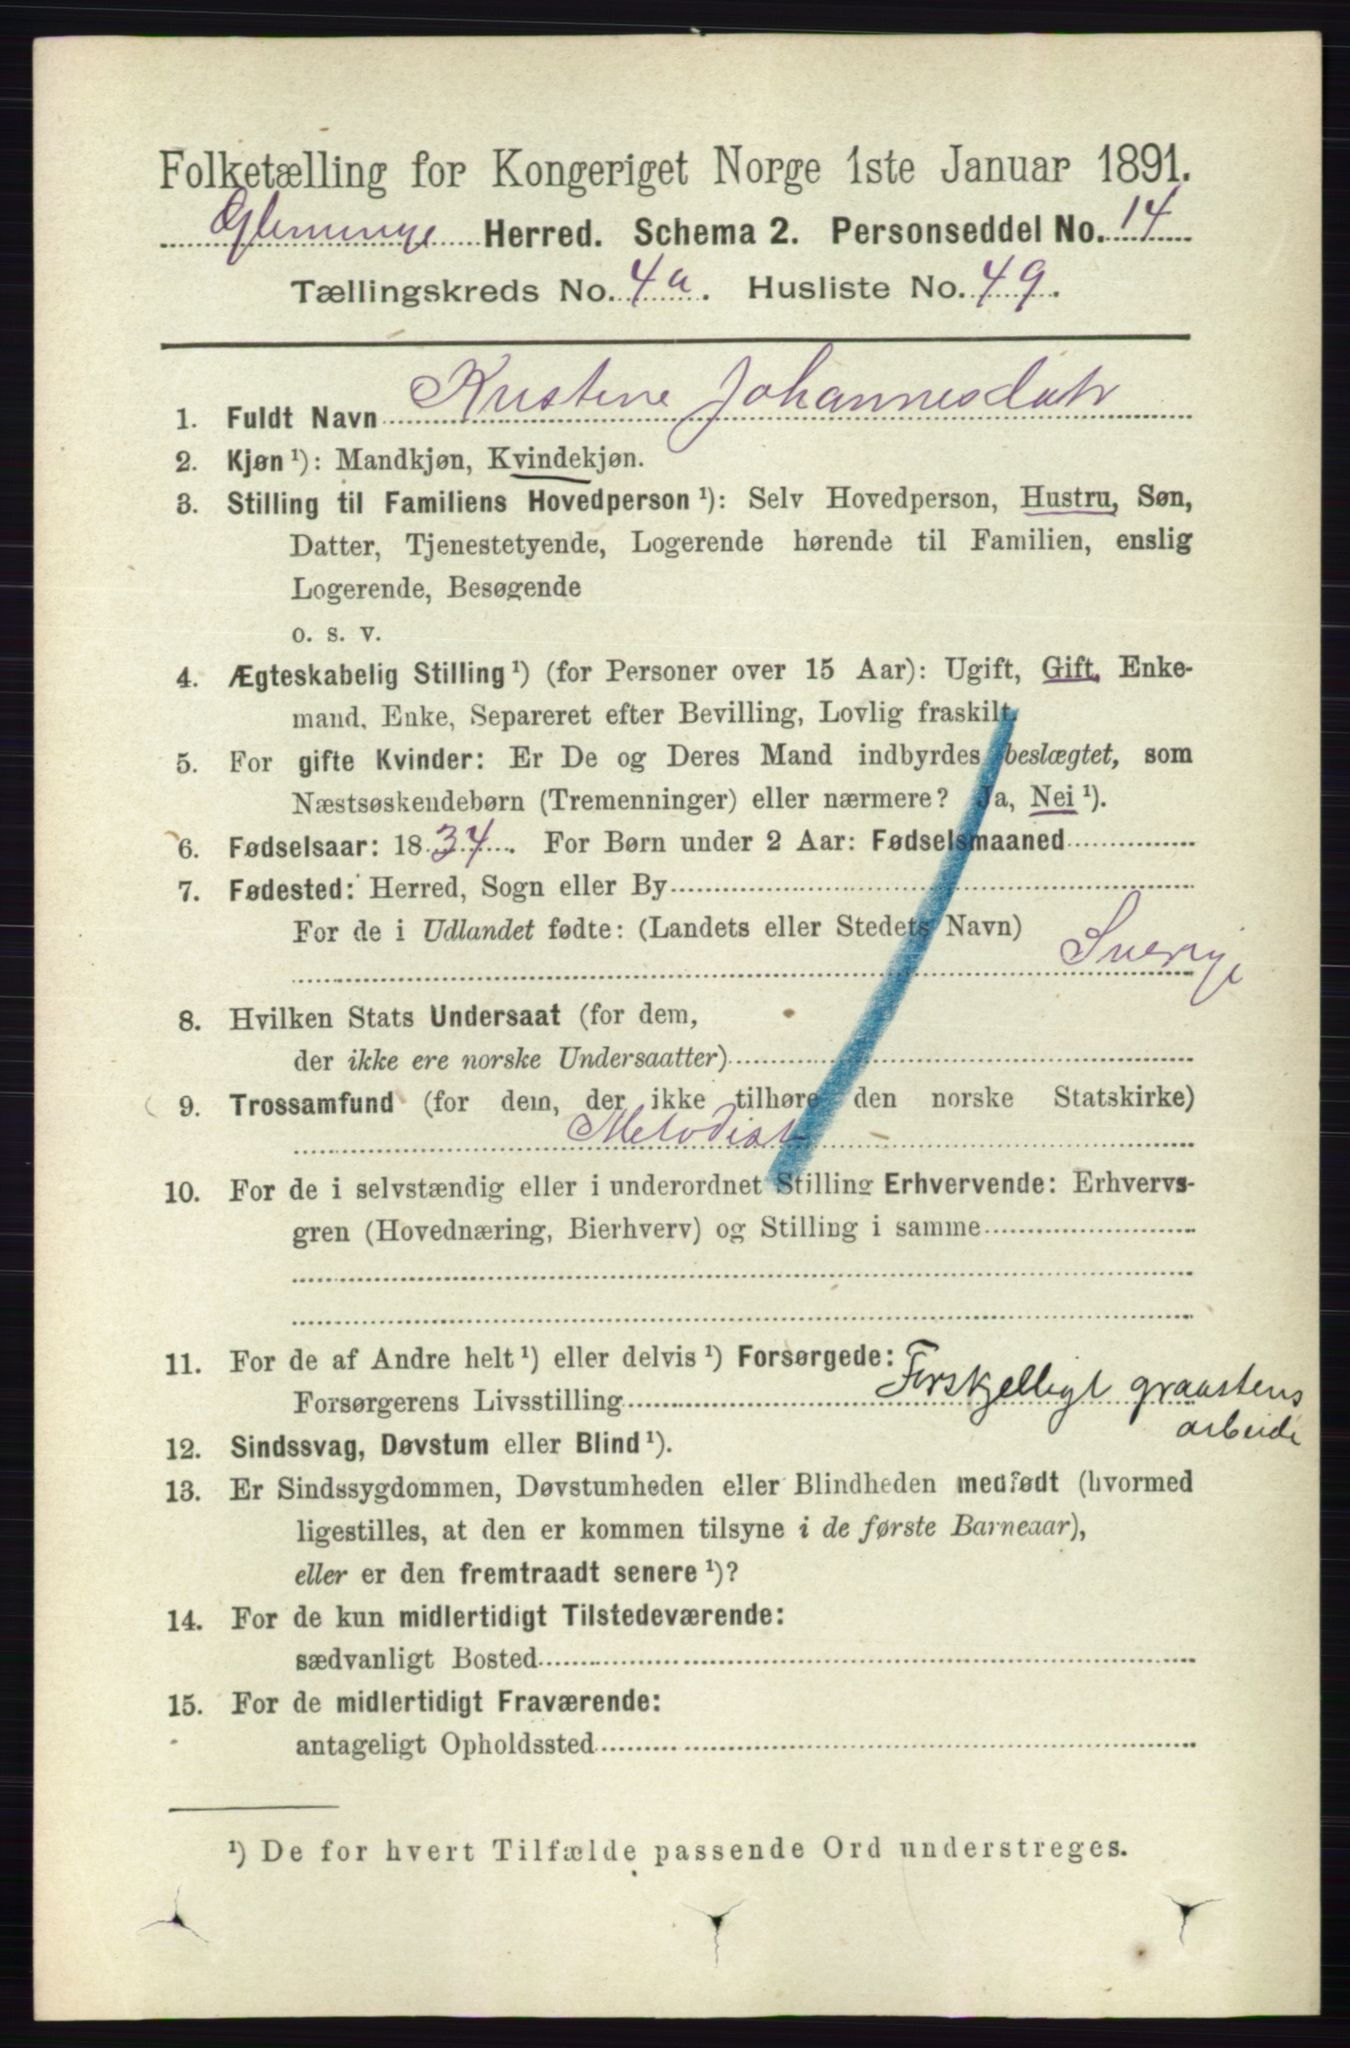 Folketælling for Kongeriget Norge 1ste Januar 1891.
Glemminge Herred. Schema 2. Personseddel No. 14
Tællingskreds No. 4a. Husliste No. 49.
1. Fuldt Navn Kristine Johannesdatr
2. Kjøn ¹): Mandkjøn, Kvindekjøn.
3. Stilling til Familiens Hovedperson ¹): Selv Hovedperson, Hustru, Søn,
Datter, Tjenestetyende, Logerende hørende til Familien, enslig
Logerende, Besøgende
o. s. v.
4. Ægteskabelig Stilling ¹) (for Personer over 15 Aar): Ugift, Gift, Enke-
mand, Enke, Separeret efter Bevilling, Lovlig fraskilt.
5. For gifte Kvinder: Er De og Deres Mand indbyrdes beslægtet, som
Næstsøskendebørn (Tremenninger) eller nærmere? Ja, Nei ¹).
6. Fødselsaar: 1834. For Børn under 2 Aar: Fødselsmaaned
7. Fødested: Herred, Sogn eller By
For de i Udlandet fødte: (Landets eller Stedets Navn)
Sverige
8. Hvilken Stats Undersaat (for dem,
der ikke ere norske Undersaatter)
9. Trossamfund (for dem, der ikke tilhøre den norske Statskirke)
Metodist
10. For de i selvstændig eller i underordnet Stilling Erhvervende: Erhvervs-
gren (Hovednæring, Bierhverv) og Stilling i samme
11. For de af Andre helt ¹) eller delvis ¹) Forsørgede:
Forsørgerens Livsstilling Forskjelligt graastens
arbeide
12. Sindssvag, Døvstum eller Blind ¹).
13. Er Sindssygdommen, Døvstumheden eller Blindheden medfødt (hvormed
ligestilles, at den er kommen tilsyne i de første Barneaar),
eller er den fremtraadt senere ¹)?
14. For de kun midlertidigt Tilstedeværende:
sædvanligt Bosted
15. For de midlertidigt Fraværende:
antageligt Opholdssted
¹) De for hvert Tilfælde passende Ord understreges.